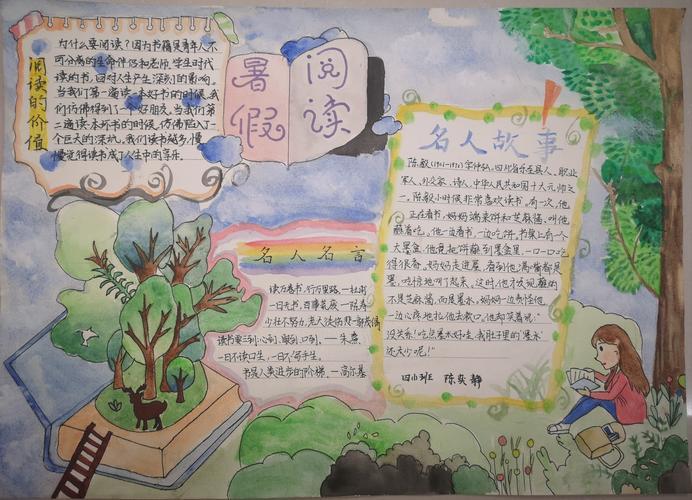 阅读的价值
为什么要阅读?因为书籍是青年人不
可分离的生命伴侣和老师,学生时代
读的书,回对人生产生深刻的影响。
当我们第一遍读一本好书的时候,我
们仿佛得到了一个好朋友,当我们第
一遍读一本坏书的时候,仿佛陷入了一
个巨大的深坑。我们读书越多,慢
慢觉得读书成了人生中的享乐。
暑假
阅读
名人名言
读万卷书,行万里路。—杜甫
一日无书,百事荒废。—陈寿
少壮不努力,老大徒伤悲
读书要三到:心到、眼到、口到。—朱熹
一日不读口生,一日不写手生。
书是人类进步的阶梯。—高尔基
名人故事
陈毅(1901-1972)字仲弘,四川省乐至县人。职业
军人、外交家、诗人,中华人民共和国十大元帅之
一。陈毅小时候非常喜欢读书。有一次,他
正在看书,妈妈端来饼和芝麻酱,叫他
蘸着吃。他一边看书,一边吃饼。书桌上有一个
大墨盒,他竟把饼蘸到墨盒里,一口一口吃
得很香。妈妈走进屋,看到他满嘴都是
墨,吃惊地叫了起来。这时,他才发现蘸的
不是芝麻酱,而是墨水。妈妈一边责怪他
一边心疼地拉他去漱口。他却笑着说:"
没关系!吃点墨水好哇,我肚子里的"墨水"
还太少呢!"
四(1)班 陈奕静